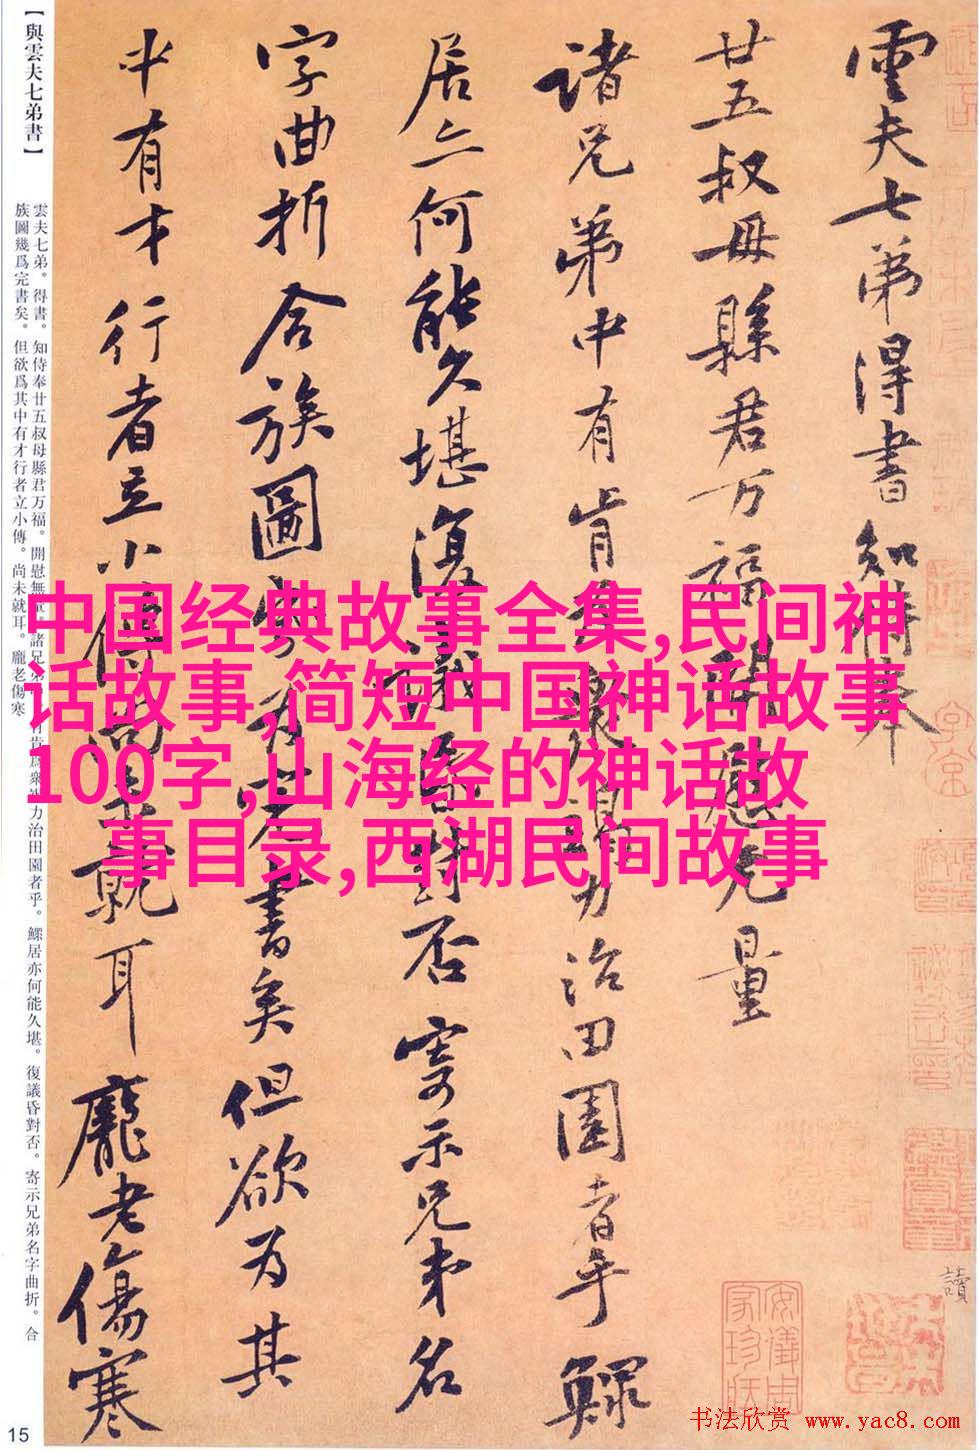 雲夫七弟得書知侍奉
廿五叔母縣君万福開慰无量
諸兄弟中有肯為衆竭力治田園者乎鰥
居亦何能久堪復議昏對否寄示兄弟名
字曲折合族圖幾为完書矣但欲为其
中有才行者立小傳尚未就耳龐老傷寒
讀
安儀周家珍藏
【與雲夫七弟書】
雲夫七弟。得書。知侍奉廿五叔母縣君万福。開慰無量。諸兄弟中有肯爲衆竭力治田園者乎。鰥居亦何能久堪。復議昏對否。寄示兄弟名字曲折。合
族圖幾爲完書矣。但欲爲其中有才行者立小傳。尚未就耳。龐老傷寒
中国经典故事全集,民间神
话故事,简短中国神话故事
100字,山海经的神话故
事目录,西湖民间故事
15
书法欣赏 www.yac8.com